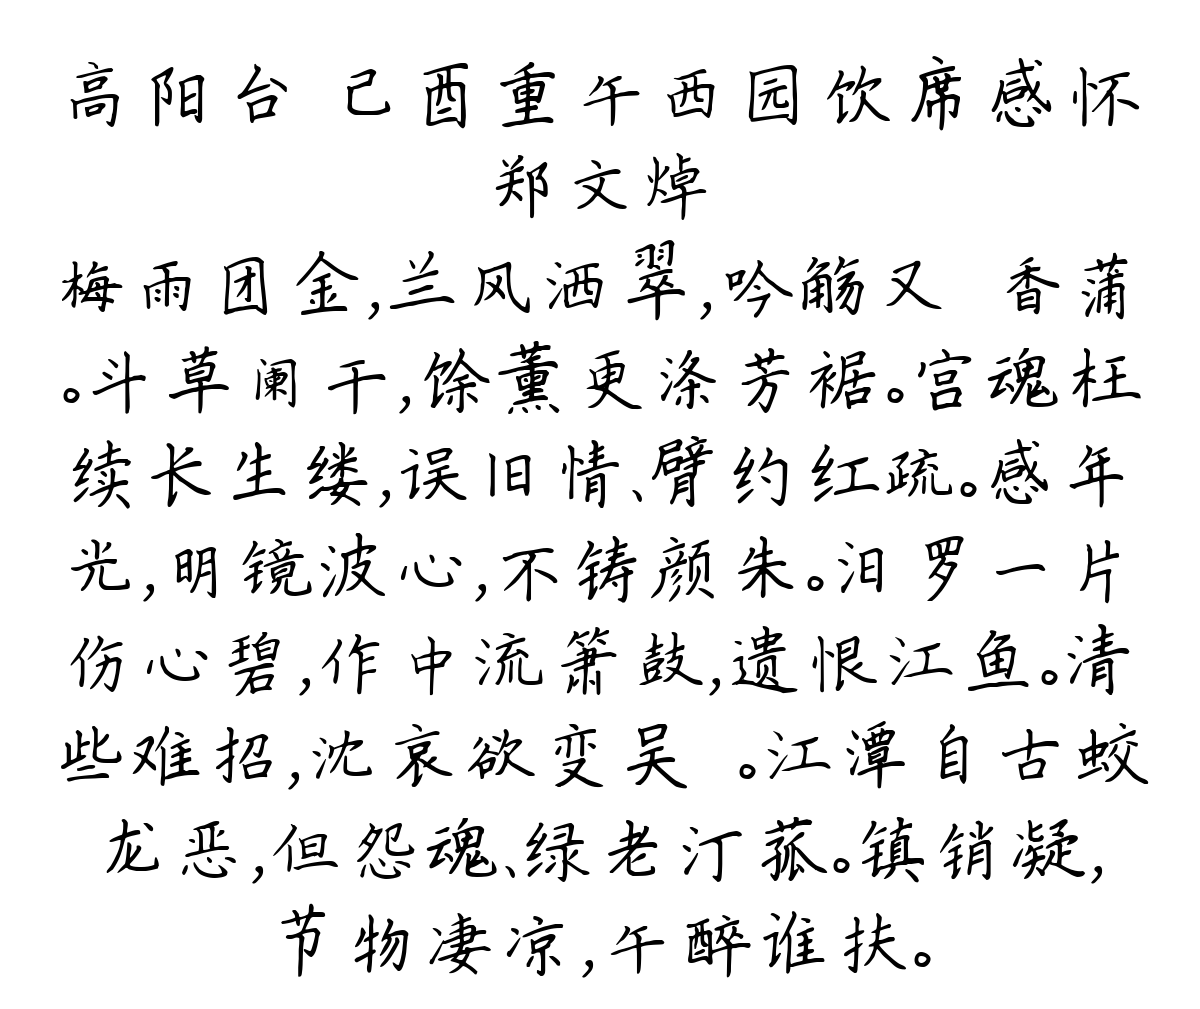 高阳台 己酉重午西园饮席感怀
郑文焯
梅雨团金,兰风洒翠,吟觞又 香蒲
。斗草阑干,馀薰更涤芳裾。宫魂枉
续长生缕,误旧情、臂约红疏。感年
光,明镜波心,不铸颜朱。汨罗一片
伤心碧,作中流箫鼓,遗恨江鱼。清
些难招,沈哀欲变吴 。江潭自古蛟
龙恶,但怨魂、绿老汀菰。镇销凝,
节物凄凉,午醉谁扶。